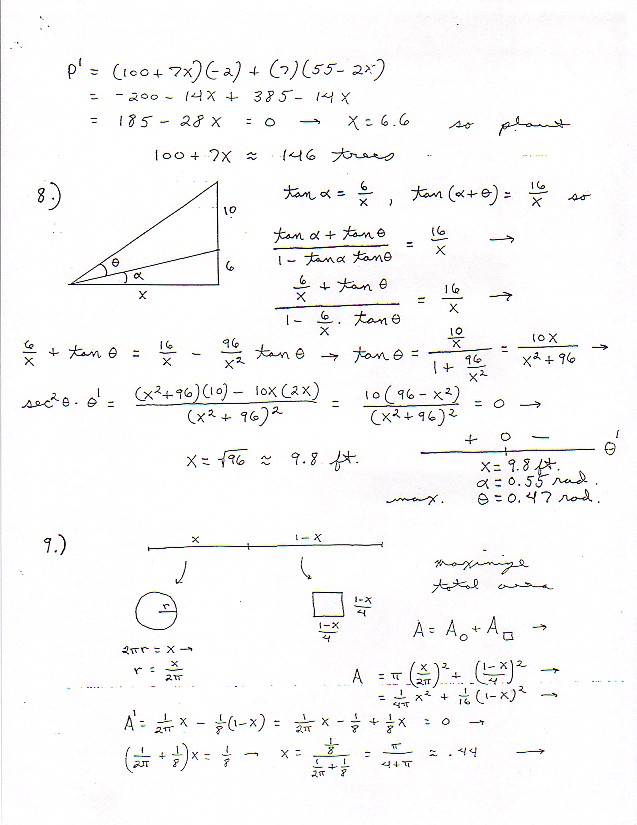 P' = (100+7x)(-2) + (7)(55-2x)
= -200 - 14x + 385 - 14x
= 185 - 28x = 0 → x = 6.6 so plant
100 + 7x ≈ 146 trees
8.)
10
θ
α
6
x
tan α = 6/x , tan(α+θ) = 16/x so
(tan α + tan θ)/(1 - tan α tan θ) = 16/x →
(6/x + tan θ)/(1 - 6/x · tan θ) = 16/x →
6/x + tan θ = 16/x - 96/x² tan θ → tan θ = (10/x)/(1 + 96/x²) = 10x/(x²+96) →
sec²θ · θ' = ((x²+96)(10) - 10x(2x))/(x²+96)² = 10(96-x²)/(x²+96)² = 0 →
x = √96 ≈ 9.8 ft.
+ 0 - θ'
x = 9.8 ft.
α = 0.55 rad.
max. θ = 0.47 rad.
9.)
x 1-x
r
(1-x)/4
(1-x)/4
2πr = x →
r = x/2π
maximize
total area
A = A○ + A□ →
A = π(x/2π)² + ((1-x)/4)² →
= 1/4π x² + 1/16 (1-x)² →
A' = 1/2π x - 1/8(1-x) = 1/2π x - 1/8 + 1/8 x = 0 →
(1/2π + 1/8)x = 1/8 → x = (1/8)/(1/2π + 1/8) = π/(4+π) ≈ .44 →